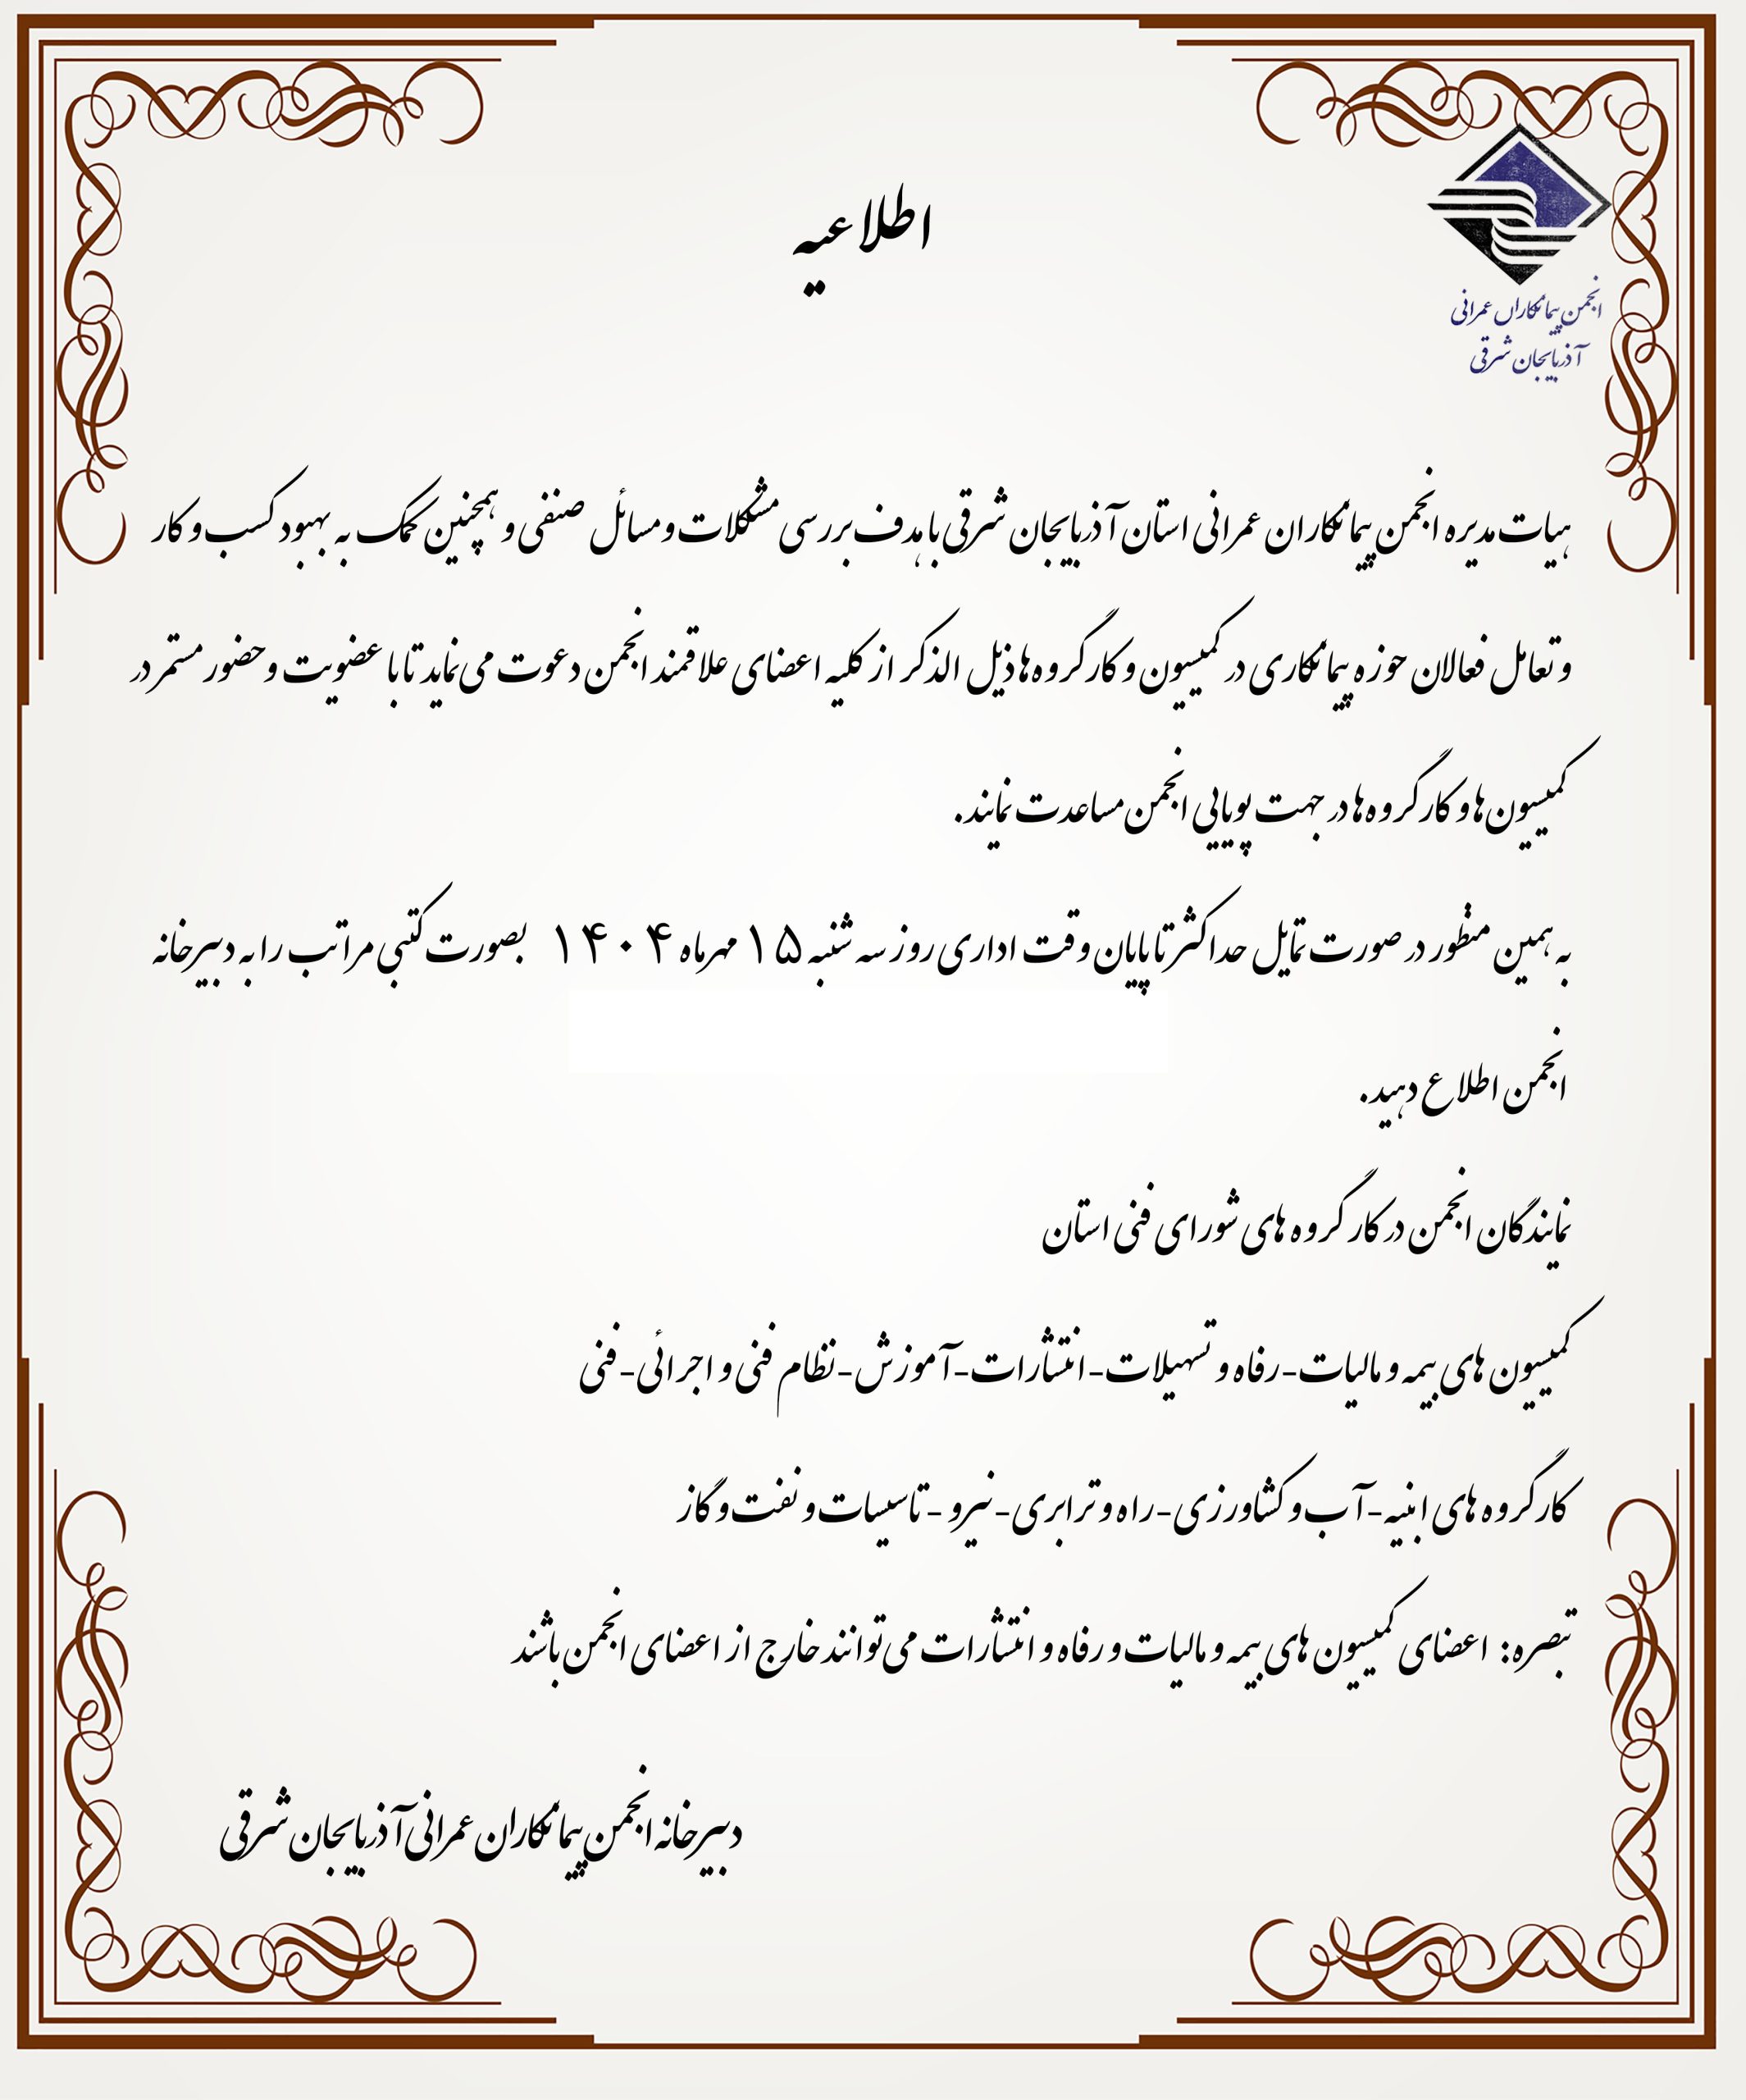 اطلاعیه
انجمن پیمانکاران عمرانی
آذربایجان شرقی
هیات مدیره انجمن پیمانکاران عمرانی استان آذربایجان شرقی با هدف بررسی مشکلات و مسائل صنفی و همچنین کمک به بهبود کسب و کار
و تعامل فعالان حوزه پیمانکاری در کمیسیون و کارگروه‌ها ذیل الذکر از کلیه اعضای علاقمند انجمن دعوت می‌نماید تا با عضویت و حضور مستمر در
کمیسیون‌ها و کارگروه‌ها در جهت پویایی انجمن مساعدت نمایند.
به همین منظور در صورت تمایل حداکثر تا پایان وقت اداری روز سه شنبه ۱۵ مهرماه ۱۴۰۴ بصورت کتبی مراتب را به دبیرخانه
انجمن اطلاع دهید.
نمایندگان انجمن در کارگروه های شورای فنی استان
کمیسیون های بیمه و مالیات-رفاه و تسهیلات-انتشارات-آموزش-نظام فنی و اجرائی-فنی
کارگروه های ابنیه-آب و کشاورزی-راه و ترابری-نیرو - تاسیسات و نفت و گاز
تبصره: اعضای کمیسیون های بیمه و مالیات و رفاه و انتشارات می‌توانند خارج از اعضای انجمن باشند
دبیرخانه انجمن پیمانکاران عمرانی آذربایجان شرقی